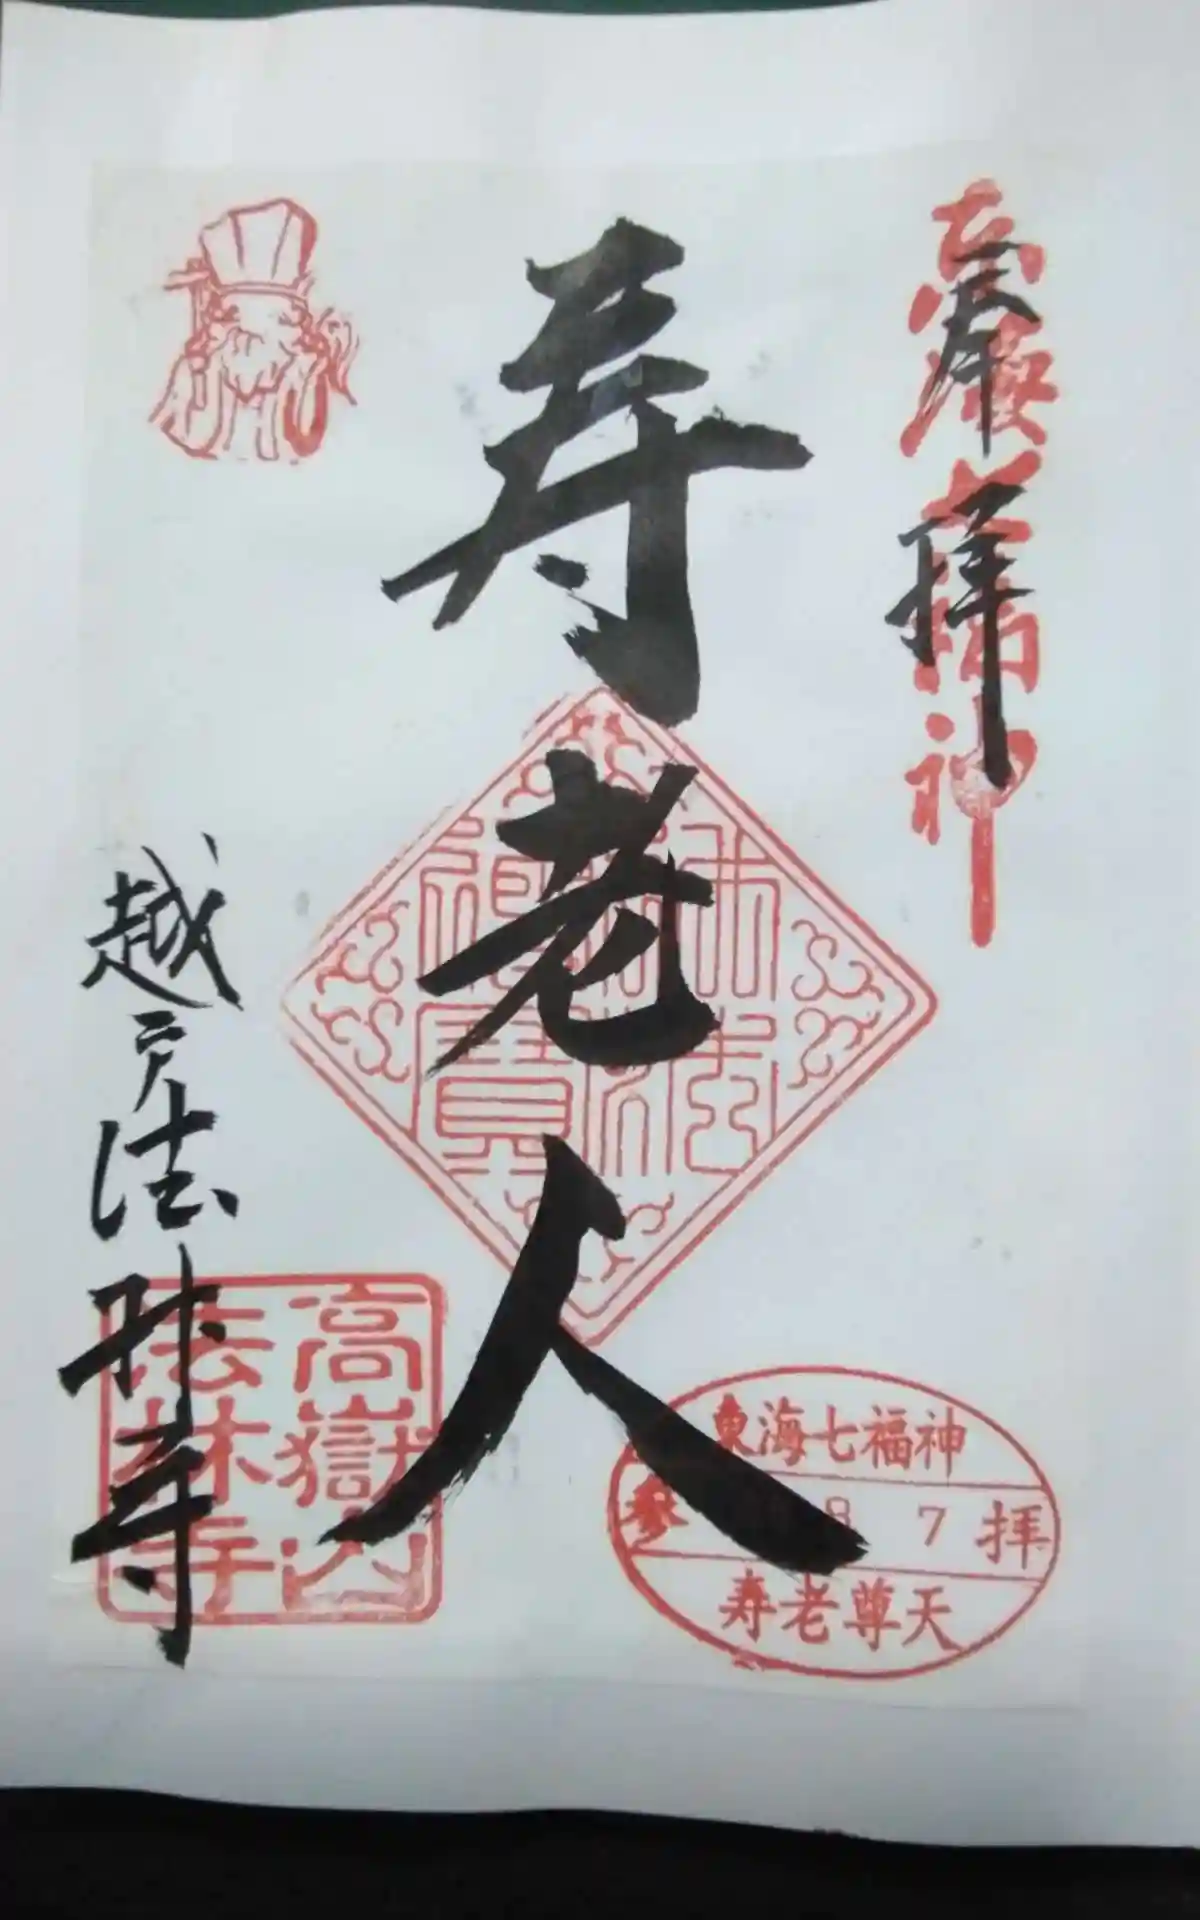 奉拝
東海七福神
寿老人
佛法僧寶
越戸法林寺
高嶽山
法林寺
東海七福神
参 8 7 拝
寿老尊天